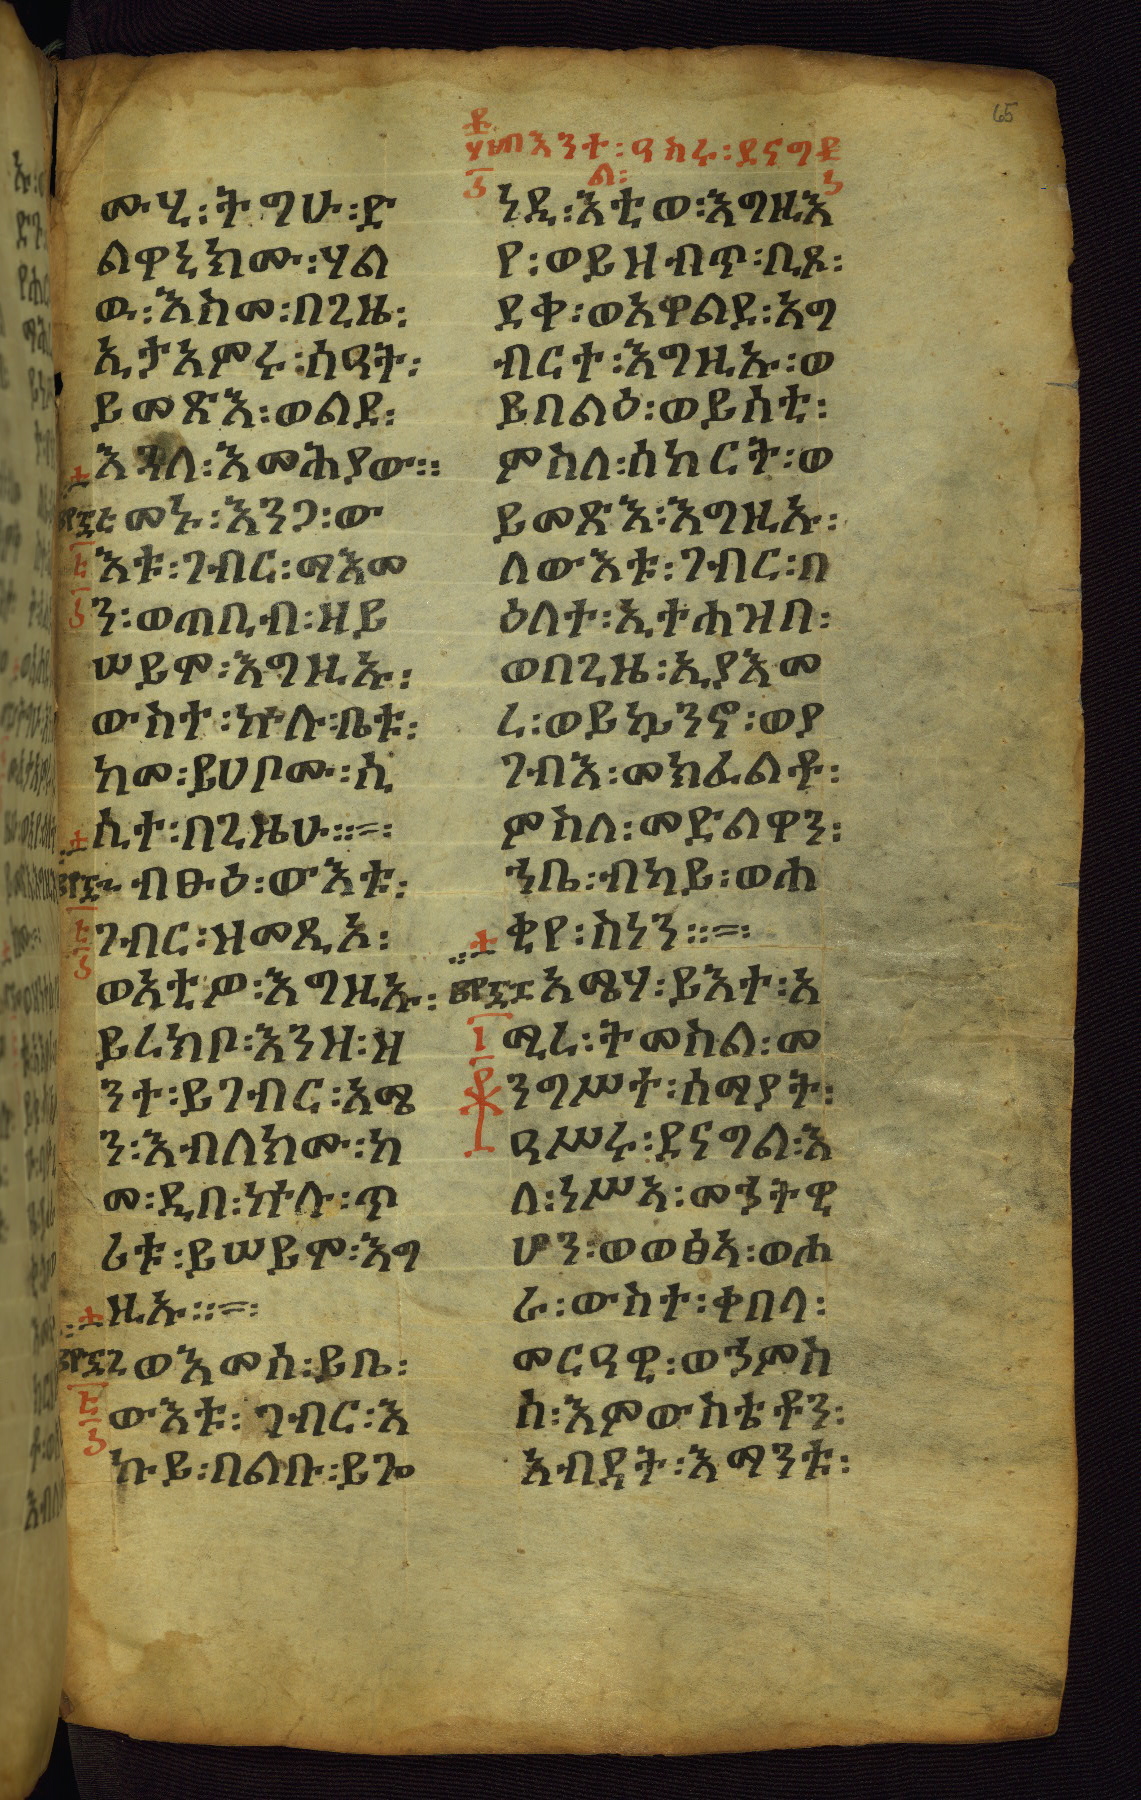 65
በእንተ፡ዓስሩ፡ደናግ
ል፡
ሙሂ፡ትግሁ፡ድ
ልዋኒክሙ፡ሃል
ዉ፡እስመ፡በጊዜ፡
ኢታአምሩ፡ሰዓት፡
ይመጽእ፡ወልደ፡
እጓለ፡እመሕያው።
መኑ፡እንጋ፡ው
እቱ፡ገብር፡ማእመ
ን፡ወጠቢብ፡ዘይ
ሠይሞ፡እግዚኡ፡
ውስተ፡ኵሉ፡ቤቱ፡
ከመ፡ይሀቦሙ፡ሲ
ሲተ፡በጊዜሁ።
ብፁዕ፡ውእቱ፡
ገብር፡ዝመጺኦ፡
ወአቲዎ፡እግዚኡ፡
ይረክቦ፡እንዘ፡ዝ
ንተ፡ይገብር፡አሜ
ን፡እብለክሙ፡ከ
መ፡ዲበ፡ኵሉ፡ጥ
ሪቱ፡ይሠይሞ፡እግ
ዚኡ።
ወእመሰ፡ይቤ፡
ውእቱ፡ገብር፡እ
ኩይ፡በልቡ፡ይጐ
ነዲ፡እቲወ፡እግዚእ
የ፡ወይዘብጥ፡ቢጾ፡
ደቀ፡ወአዋልደ፡አግ
ብርተ፡እግዚኡ፡ወ
ይበልዕ፡ወይሰቲ፡
ምስለ፡ሰከርት፡ወ
ይመጽእ፡እግዚኡ፡
ለውእቱ፡ገብር፡በ
ዕለተ፡ኢተሐዝበ፡
ወበጊዜ፡ኢያእመ
ረ፡ወይኴንኖ፡ወያ
ገብእ፡መክፈልቶ፡
ምስለ፡መድልዋን፡
ኀቤ፡ብካይ፡ወሐ
ቂየ፡ስነን።
አሜሃ፡ይእተ፡አ
ሚረ፡ትመስል፡መ
ንግሥተ፡ሰማያት፡
ዓሥሩ፡ደናግል፡እ
ለ፡ነሥኣ፡መኀትዊ
ሆን፡ወወፅኣ፡ወሐ
ራ፡ውስተ፡ቀበላ፡
መርዓዊ፡ወኀምስ
ሰ፡እምውስቴቶን፡
አብዳት፡እማንቱ፡